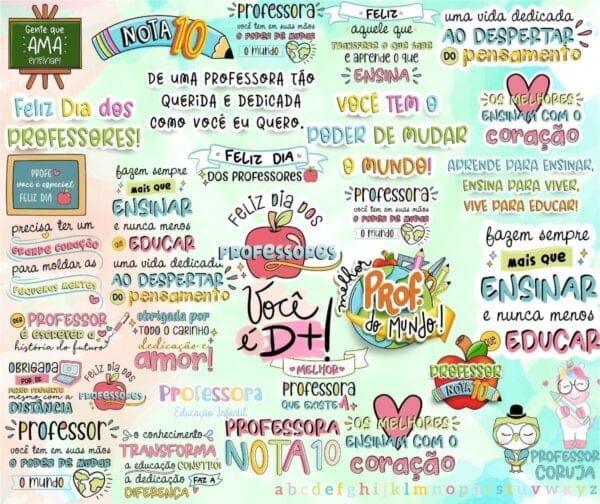 Gente que
AMA
ensinar!
NOTA 10
PROFESSORA
você tem em suas mãos
O PODER DE MUDAR
O mundo
FELIZ
aquele que
TRANSFERE O QUE SABE
e aprende o que
ENSINA
uma vida dedicada
AO DESPERTAR
DO pensamento
DE UMA PROFESSORA TÃO
QUERIDA E DEDICADA
COMO VOCÊ EU QUERO.
FELIZ DIA DOS
PROFESSORES!
FELIZ DIA
DOS PROFESSORES
VOCÊ TEM O
PODER DE MUDAR
O MUNDO!
OS MELHORES
ENSINAM COM O
coração
PROFE
você é especial
FELIZ DIA
fazem sempre
mais que
ENSINAR
e nunca menos
que EDUCAR
APRENDE PARA ENSINAR,
ENSINA PARA VIVER,
VIVE PARA EDUCAR!
Professora
você tem em suas mãos
O PODER DE MUDAR
O mundo
precisa ter um
GRANDE CORAÇÃO
para moldar as
PEQUENAS MENTES
FELIZ DIA DOS
PROFESSORES
fazem sempre
mais que
ENSINAR
e nunca menos
que EDUCAR
uma vida dedicada
AO DESPERTAR
DO pensamento
Você
é D+!
melhor
PROF.
do MUNDO!
SER PROFESSOR
É ESCREVER A
história do futuro
obrigada por
TODO O CARINHO
dedicação e
amor!
OBRIGADA
POR SE
FAZER PRESENTE
MESMO COM A
DISTÂNCIA
FELIZ DIA DOS
PROFESSORES
Professora
Educação Infantil
MELHOR
Professora
QUE EXISTE
PROFESSOR
NOTA 10
Professor
você tem em suas mãos
O PODER DE MUDAR
O mundo
o conhecimento
TRANSFORMA
a educação CONSTRÓI
a dedicação FAZ A
DIFERENÇA
PROFESSORA
NOTA 10
OS MELHORES
ENSINAM COM O
coração
PROFESSOR
CORUJA
abcdefghijklmnopqrstuvwxyz